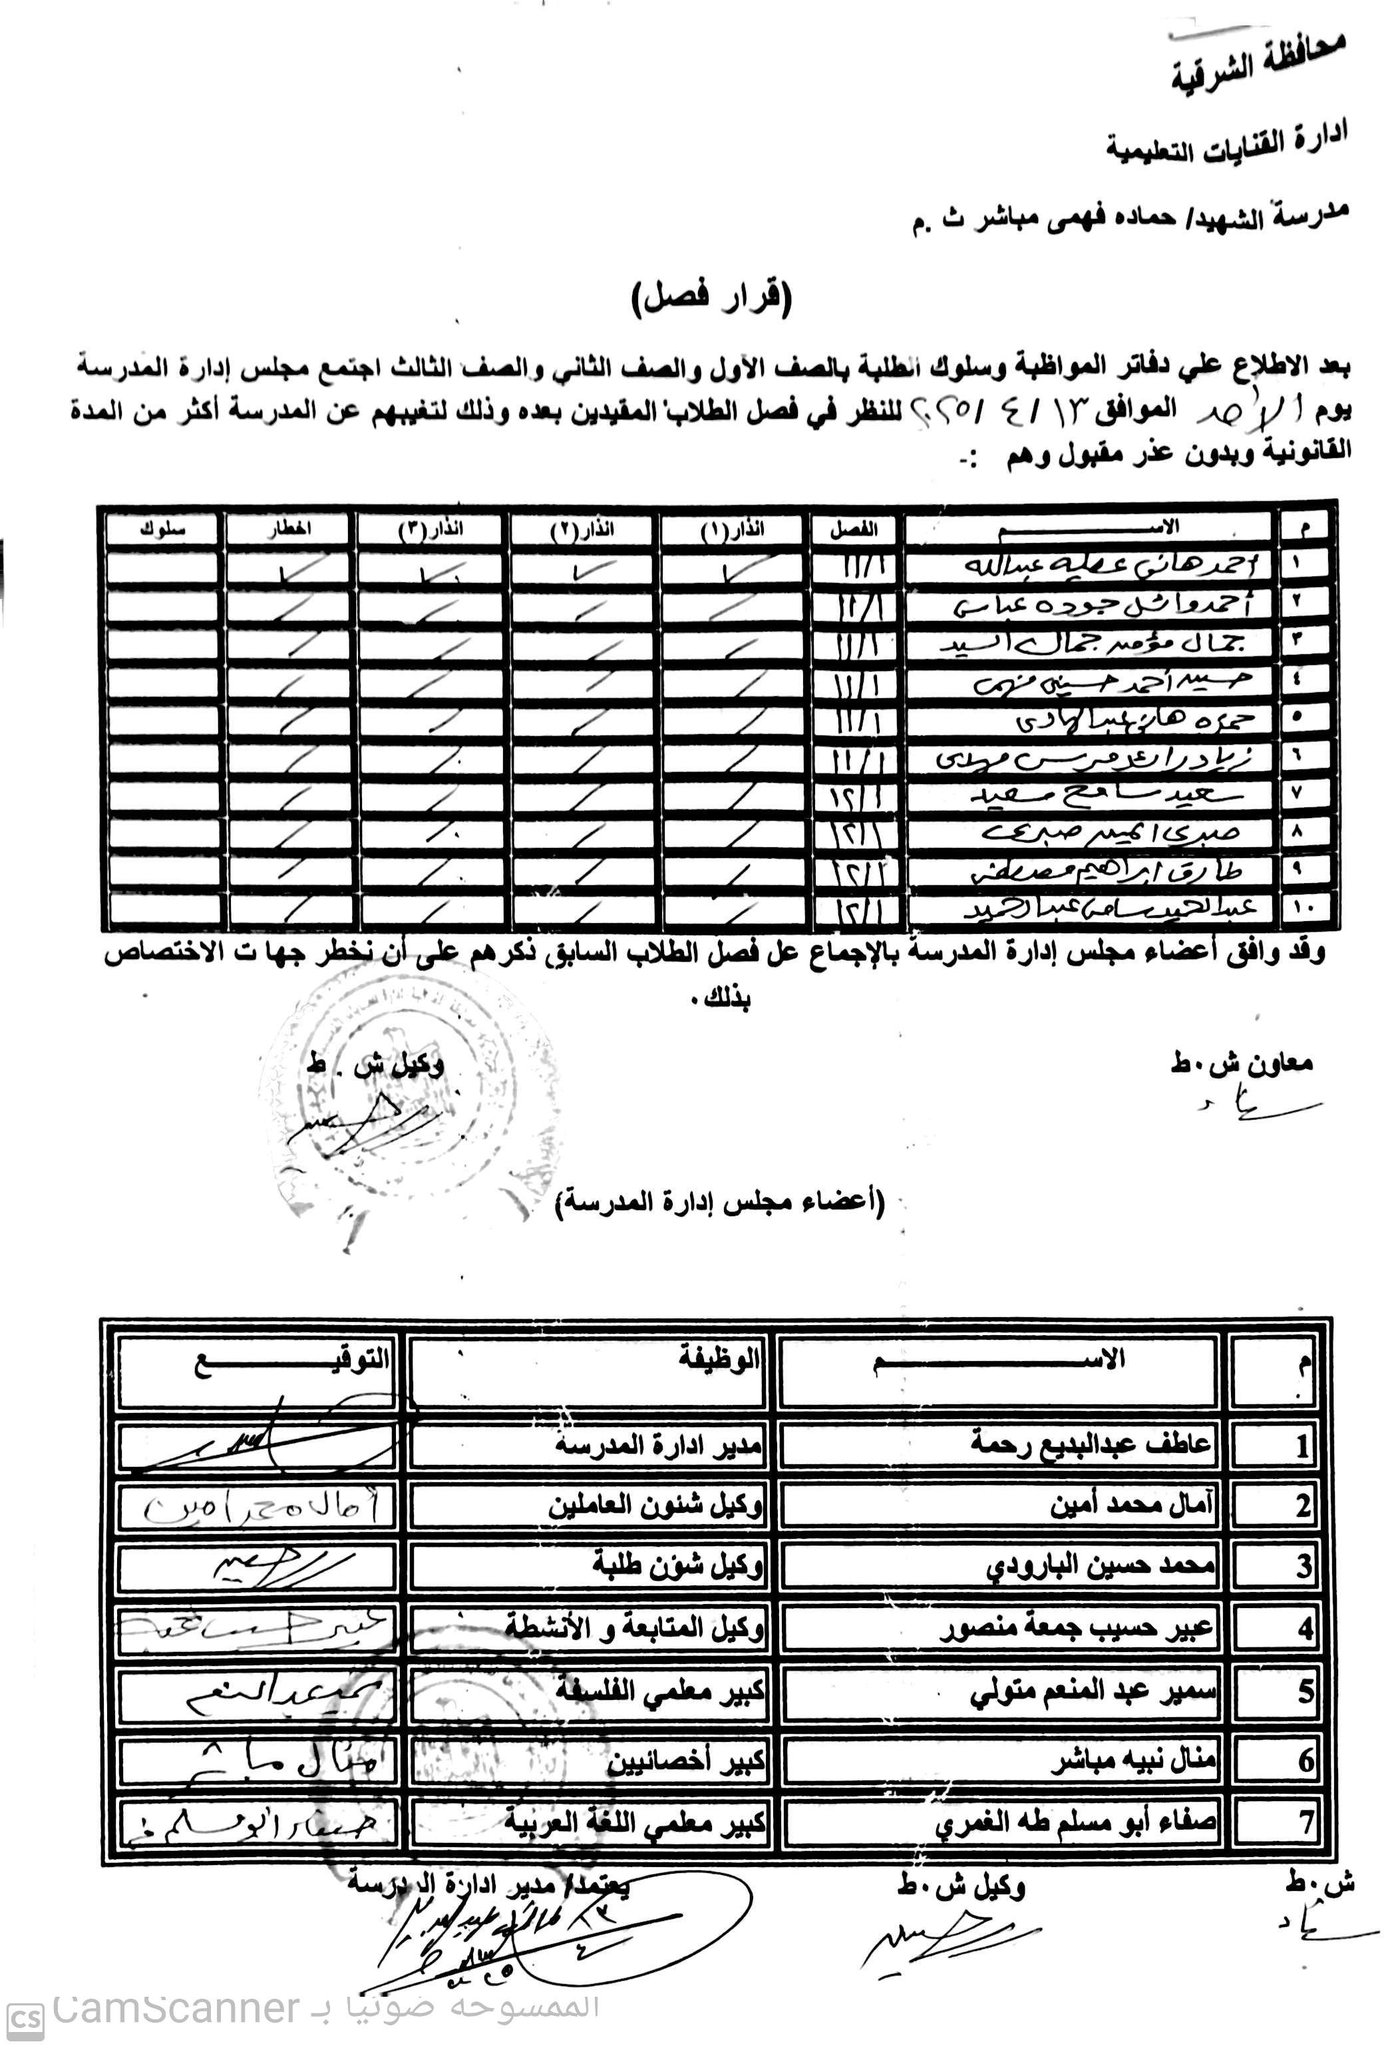 محافظة الشرقية
ادارة القنايات التعليمية
مدرسة الشهيد/ حماده فهمى مباشر ث .م
(قرار فصل)
بعد الاطلاع علي دفاتر المواظبة وسلوك الطلبة بالصف الأول والصف الثاني والصف الثالث اجتمع مجلس إدارة المدرسة
يوم الأحد الموافق ١٣ / ٤ / ٢٠٢٥ للنظر في فصل الطلاب المقيدين بعده وذلك لتغيبهم عن المدرسة أكثر من المدة
القانونية وبدون عذر مقبول وهم :-
م الاســـــم الفصل انذار(١) انذار(٢) انذار(٣) اخطار سلوك
١ أحمد هاني عطيه عبدالله ١١/١ ✓ ✓ ✓ ✓
٢ أحمد وائل جوده عباس ١١/١ / / / /
٣ جمال مؤمن جمال السيد ١١/١ / / / /
٤ حسين أحمد حسيني فهمى ١١/١ / / / /
٥ حمزه هاني عبدالهادى ١١/١ / / / /
٦ زياد رائد مهدى ١١/١ / / / /
٧ سعيد سامح سعيد ١٢/١ / / / /
٨ صبرى صبرى ١٢/١ / / / /
٩ طارق ابراهيم مصطفى ١٢/١ / / / /
١٠ عبدالحميد سامى عبدالحميد ١٢/١ / / / /
وقد وافق أعضاء مجلس إدارة المدرسة بالإجماع عل فصل الطلاب السابق ذكرهم على أن نخطر جها ت الاختصاص
بذلك.
معاون ش.ط وكيل ش . ط
(أعضاء مجلس إدارة المدرسة)
م الاســـــم الوظيفة التوقيـــــع
1 عاطف عبدالبديع رحمة مدير ادارة المدرسة
2 آمال محمد أمين وكيل شئون العاملين أمال محمد امين
3 محمد حسين البارودي وكيل شؤن طلبة
4 عبير حسيب جمعة منصور وكيل المتابعة و الأنشطة عبير حسيب جمعه
5 سمير عبد المنعم متولي كبير معلمي الفلسفة سمير عبدالمنعم
6 منال نبيه مباشر كبير أخصائيين منال مباشر
7 صفاء أبو مسلم طه الغمري كبير معلمي اللغة العربية صفاء ابو مسلم
ش.ط وكيل ش.ط يعتمد/ مدير ادارة المدرسة
الممسوحة ضوئيا بـ CamScanner
CS